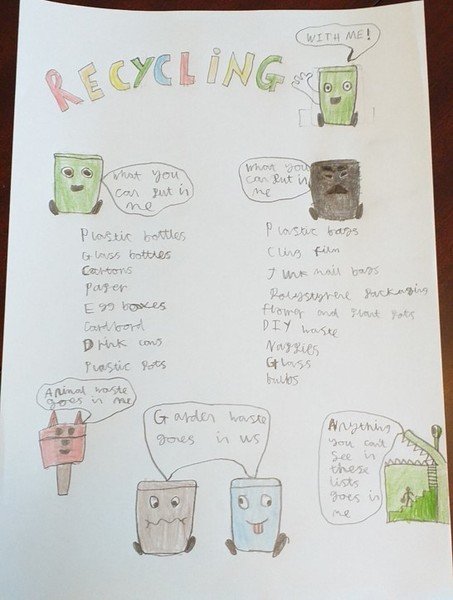 RECYCLING
WITH ME!
What you
can put in
me
Plastic bottles
Glass bottles
Cartons
Paper
Egg boxes
Cardbord
Drink cans
Plastic Pots
What you
can put in
me
Plastic bags
Cling film
Junk mail bags
Polystyrene Packaging
flower and Plant Pots
DIY waste
Nappies
Glass
bulbs
Animal waste
goes in me
Garden waste
goes in us
Anything
you can't
see in
these
lists
goes in
me